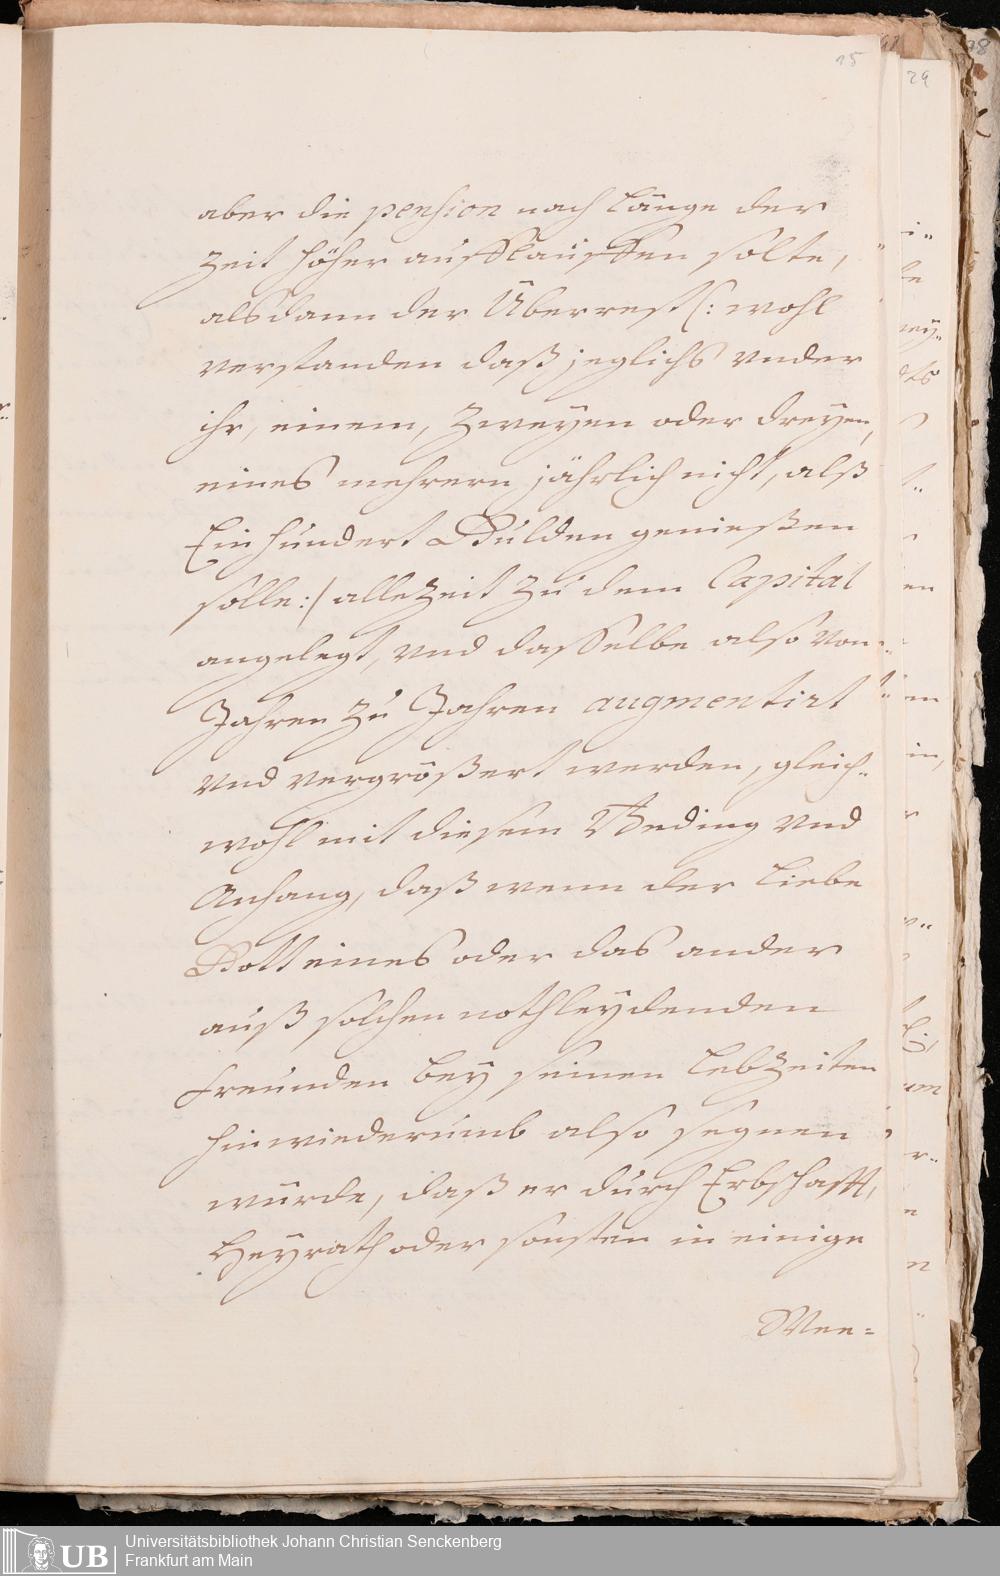 15
29
aber die pension nach länge der
Zeit höher aufflauffen solte,
alsdann der Überrest /: wohl
verstanden daß jeglichs vnder
ihr, einem, Zweyen oder dreyen,
eines mehrern jährlich nicht, alß
Ein hundert Gulden genießen
solle :/ alleZeit zu dem Capital
angelegt, vnd dasselbe also von
Jahren zu Jahren augmentirt
vnd vergrößert werden, gleich=
wohl mit diesem Beding vnd
Anhang, daß wenn der liebe
Gott eines oder das ander
auß solchen nothleydenden
Freunden bey seinen LebZeiten
hinwiederumb also segnen
würde, daß er durch Erbschafft,
Heyrath oder sonsten in einige
Wee=
UB
Universitätsbibliothek Johann Christian Senckenberg
Frankfurt am Main